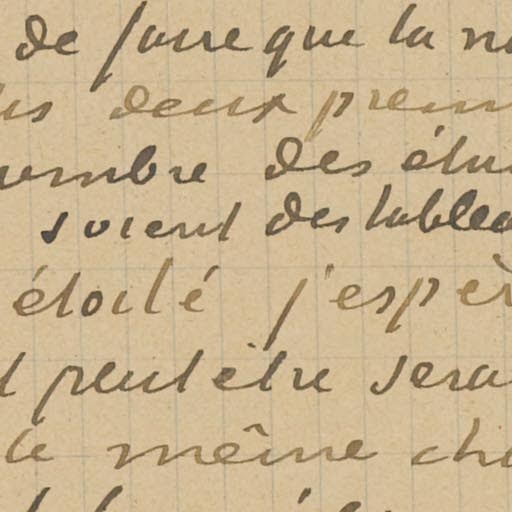 de faire que la nu
les deux prem
nombre des étu
soient des tablea
étoilé j'espèr
et peut être sera
la même cho